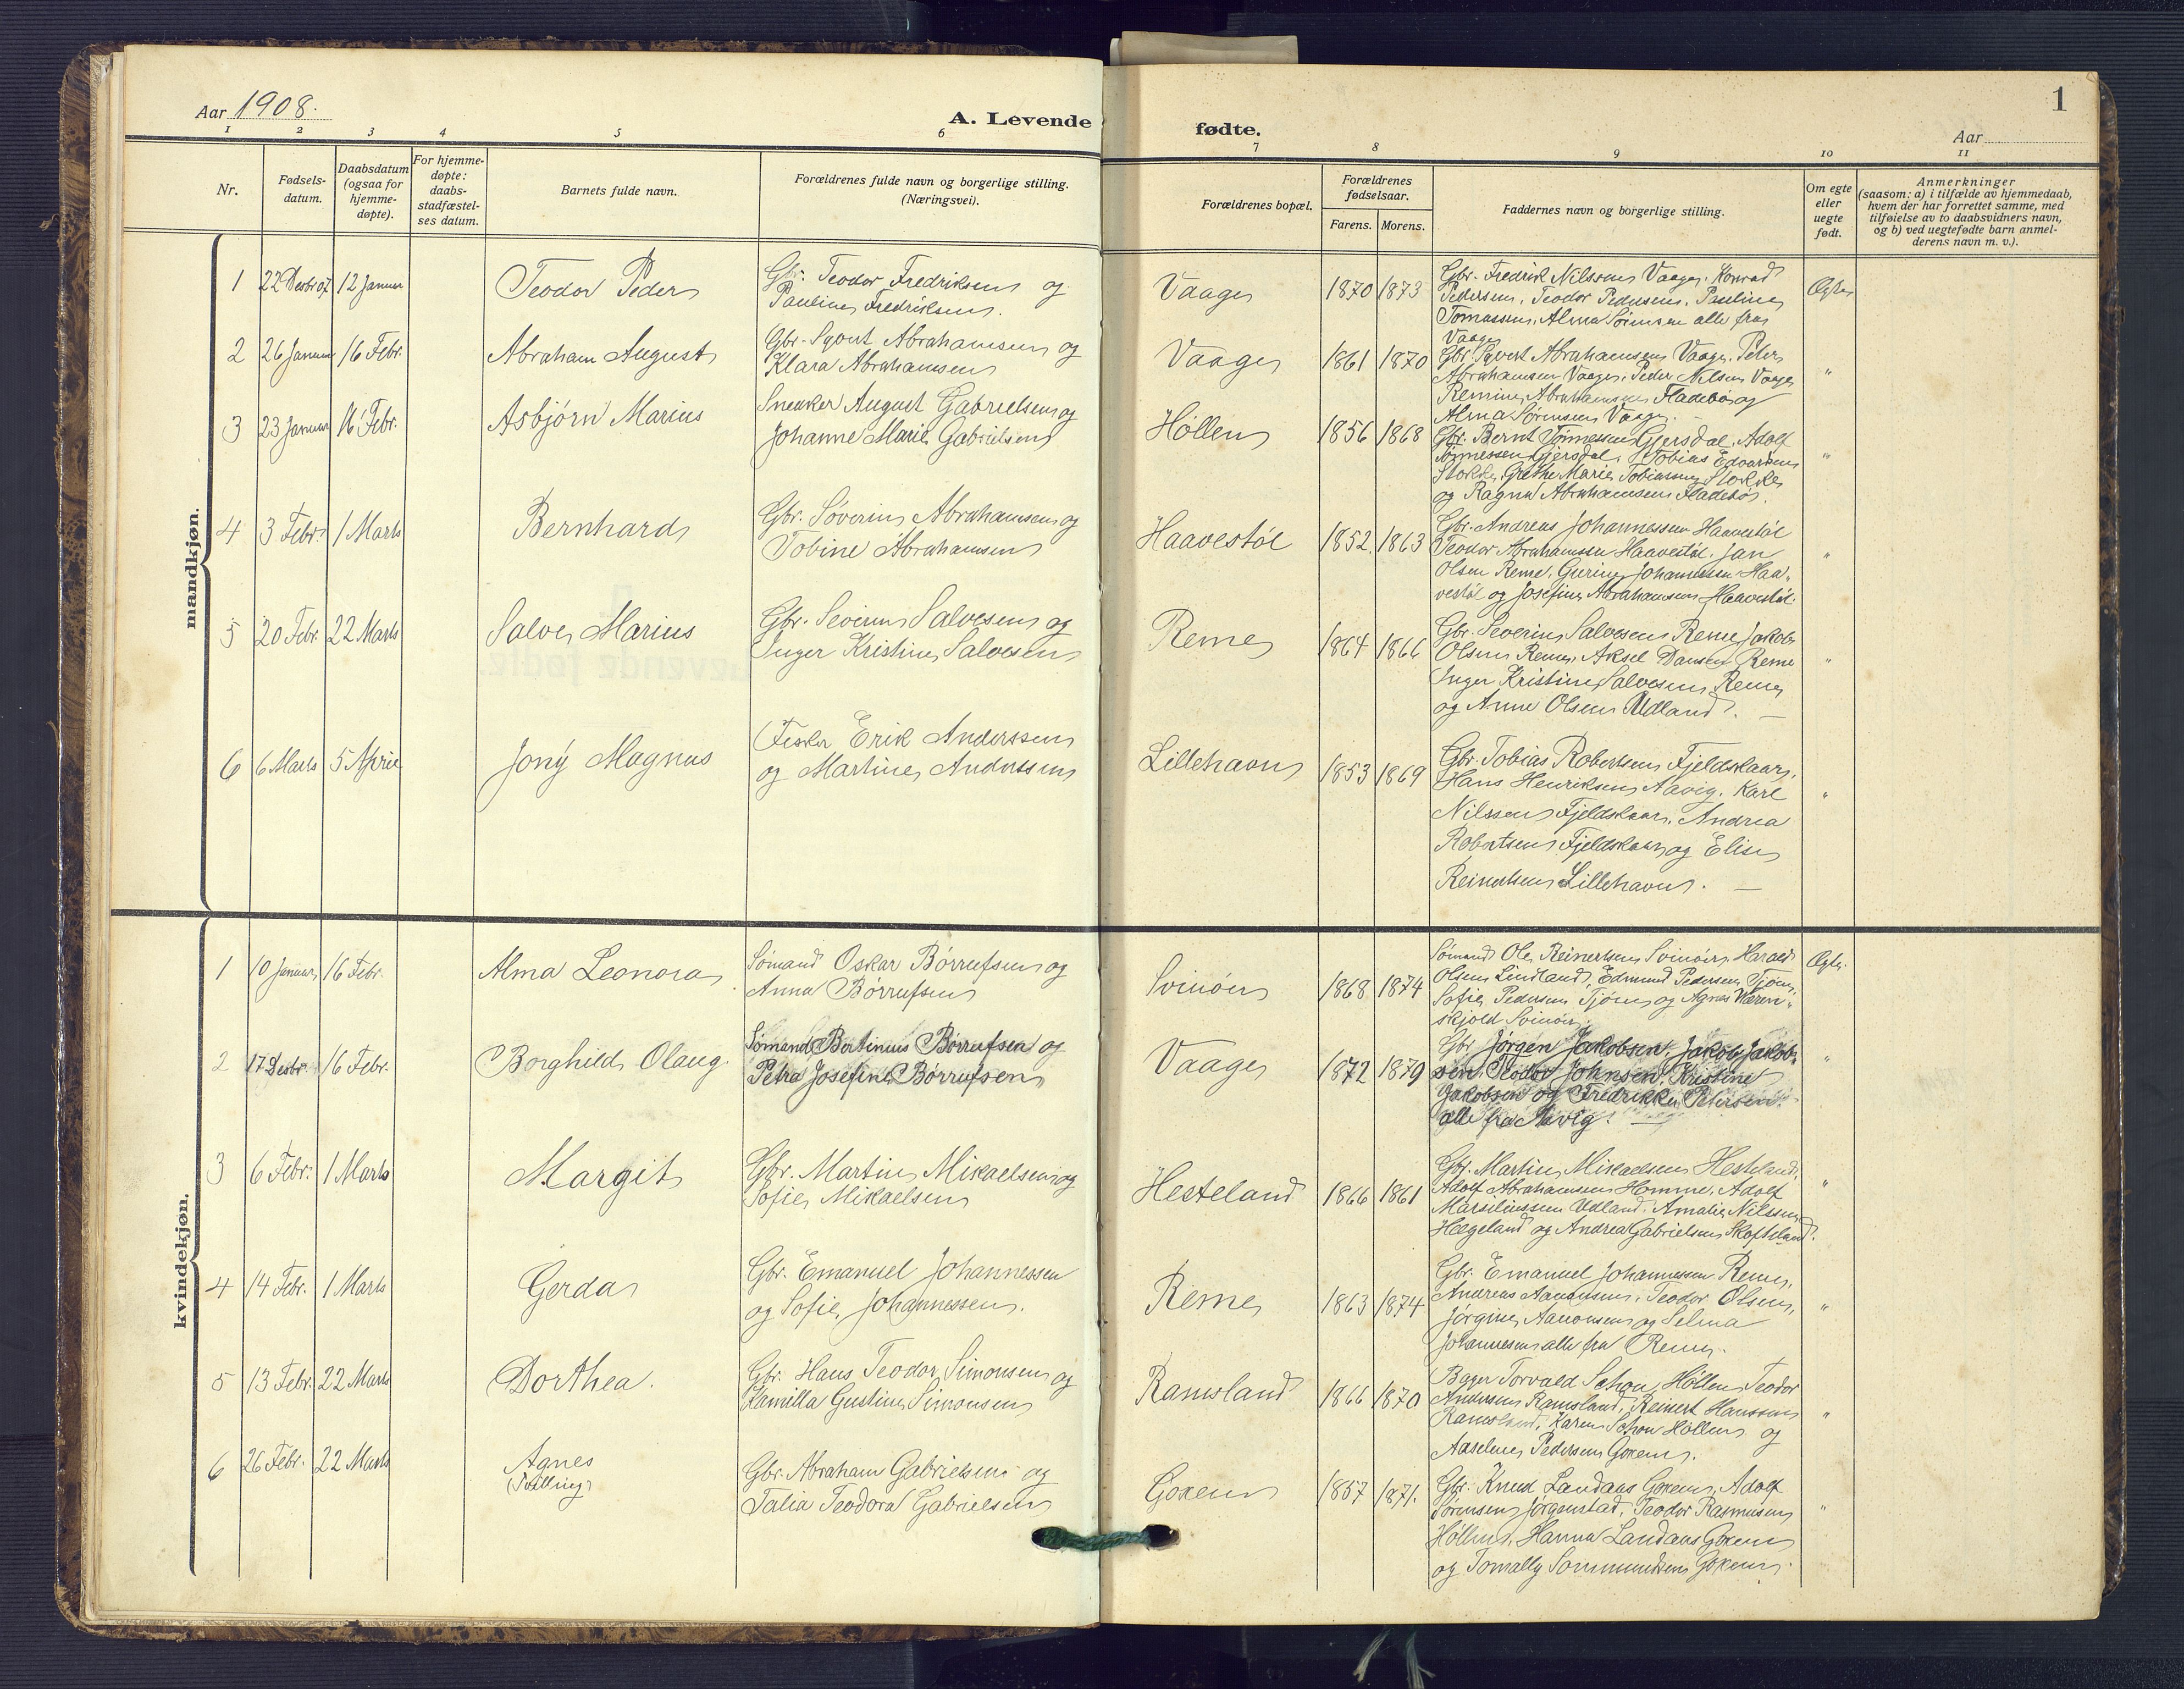 Aar 1908.
A. Levende fødte.
1
Aar
1 2 3 4 5 6 7 8 9 10 11
Nr.
Fødsels-
datum.
Daabsdatum
(ogsaa for
hjemme-
døpte).
For hjemme-
døpte:
daabs-
stadfæstel-
ses datum.
Barnets fulde navn.
Forældrenes fulde navn og borgerlige stilling.
(Næringsvei).
Forældrenes bopæl.
Forældrenes
fødselsaar.
Farens. Morens.
Faddernes navn og borgerlige stilling.
Om egte
eller
uegte
født.
Anmerkninger
(saasom: a) i tilfælde av hjemmedaab,
hvem der har forrettet samme, med
tilføielse av to daabsvidners navn,
og b) ved uegtefødte barn anmel-
derens navn m. v.).
mandkjøn.
1 22 Desbr 07 12 Januar Teodor Peder
Gbr. Teodor Fredriksen og
Pauline Fredriksen.
Vaage 1870 1873
Gbr. Fredrik Nilssen Vaage, Konrad
Pedersen, Teodor Pedersen, Pauline
Tomassen, Alma Sørensen alle fra
Vaage
Egte
2 26 Januar 16 Febr. Abraham August
Gbr. Sgvart Abrahamsen og
Klara Abrahamsen
Vaage 1861 1870
Abrahamsen Vaage, Peter
Abrahamsen Vaage, Peder Nilsen Vaage
Abrahamsen Fladebø og
Alma Sørensen Vaage.
"
3 23 Januar 16 Febr. Asbjørn Marius
Snekker August Gabrielsen og
Johanne Marie Gabrielsen
Høllen 1856 1868
Gbr. Bernt Tønnessen Gjersdal, Adolf
Tønnessen Gjersdal, Tobias Edvardsen
Stokke, Grethe Marie Tobiassen Stokke
og Ragna Abrahamsen Fladebø.
"
4 3 Febr. 1 Marts Bernhard
Gbr. Søverin Abrahamsen og
Tobine Abrahamsen
Haavestøl 1852 1863
Gbr. Andreas Johannessen Haavestøl
Teodor Abrahamsen Haavestøl, Jan
Olsen Reme, Gurine Johannessen Haa-
vestøl og Josefine Abrahamsen Haavestøl.
"
5 20 Febr. 22 Marts Salve Marius
Gbr. Severin Salvesen og
Inger Kristine Salvesen
Reme 1864 1866
Gbr. Severin Salvesen Reme, Jakob
Olsen Reme, Aksel Reme
Inger Kristine Salvesen Reme
og Anne Olsen Udland. —
"
6 6 Marts 5 April Jony Magnus
Fisker Erik Anderssen
og Martine Anderssen
Lillehavn 1853 1869
Gbr. Tobias Robertsen Fjeldskaar,
Hans Henriksen Aavig, Karl
Nilssen Fjeldskaar, Andrea
Robertsen Fjeldskaar og Elise
Reinertsen Lillehavn. —
"
kvindekjøn.
1 10 Januar 16 Febr. Alma Leonora
Sømand Oskar Børrufsen og
Anna Børrufsen
Svinøer 1868 1874
Sømand Ole Reinertsen Svinøer, Harald
Olsen Lindland, Edmund Pedersen Tjøm,
Sofie Pedersen Tjøm og Agnes Waren-
skjold Svinøer.
Egte.
2 17 Desbr. 16 Febr. Borghild Olaug.
Sømand Bertinius Børrufsen og
Petra Josefine Børrufsen
Vaage 1872 1879
Gbr. Jørgen Jakobsen, Jakob Jakob-
sen, Teodor Johnsen, Kristine
Jakobsen og Fredrikke Petersen
alle fra Aavig. —
"
3 6 Febr. 1 Marts Margit
Gbr. Martin Mikaelsen og
Sofie Mikaelsen
Hesteland 1866 1861
Gbr. Martin Mikaelsen Hesteland,
Adolf Abrahamsen Homme, Adolf
Marseliussen Udland, Amalie Nilssen
Hægeland og Andrea Gabrielsen Skofteland.
"
4 14 Febr. 1 Marts Gerda
Gbr. Emanuel Johannessen
og Sofie Johannessen.
Reme 1863 1874
Gbr. Emanuel Johannessen Reme,
Andreas Aanonsen, Teodor Olsen,
Jørgine Aanonsen og Selma
Johannesen alle fra Reme.
"
5 13 Febr. 22 Marts Dorthea.
Gbr. Hans Teodor Simonsen og
Kamilla Gustine Simonsen
Ramsland 1866 1870
Bager Torvald Schou Høllen, Teodor
Andersen Ramsland, Reinert Hanssen
Ramsland, Karen Schou Høllen og
Aaseline Pedersen Goxem.
"
6 26 Febr. 22 Marts Agnes
(Tvilling)
Gbr. Abraham Gabrielsen og
Talia Teodora Gabrielsen
Goxem 1857 1871.
Gbr. Knud Landaas Goxem, Adolf
Sørensen Jørgenstad, Teodor Rasmusen
Høllen, Hanna Landaas Goxem
og Tomally Sommundsen Goxem.
"